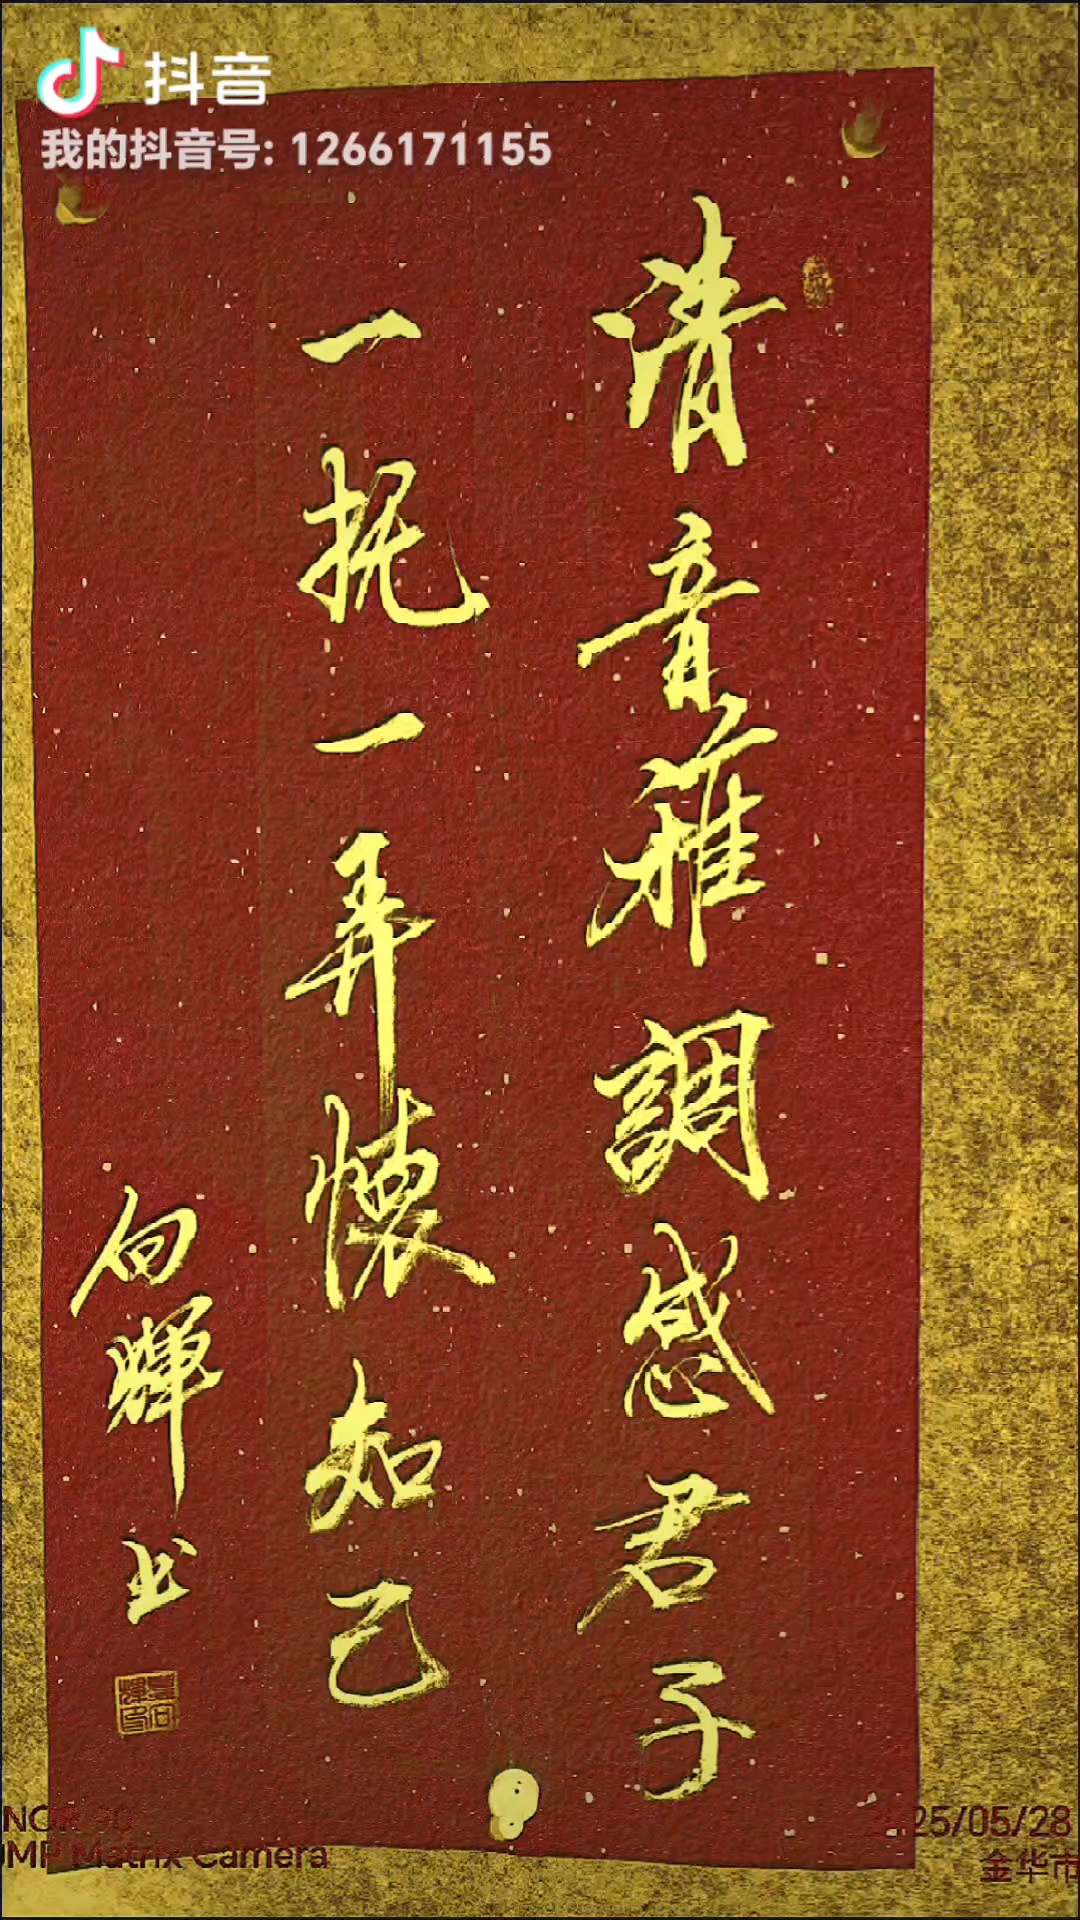 抖音
我的抖音号: 1266171155
清音雅調感君子
一抚一弄懷知己
向輝书
25/05/28
Matrix Camera
金华市